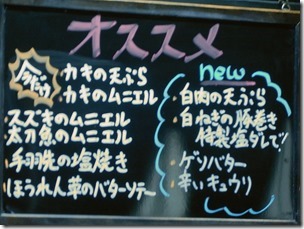 オススメ
今だけ
カキの天ぷら
カキのムニエル
・スズキのムニエル
太刀魚のムニエル
・手羽先の塩焼き
・ほうれん草のバターソテー
new
・白肉の天ぷら
・白ねぎの豚巻き
特製塩ダレで!
・ゲソバター
・辛いキュウリ